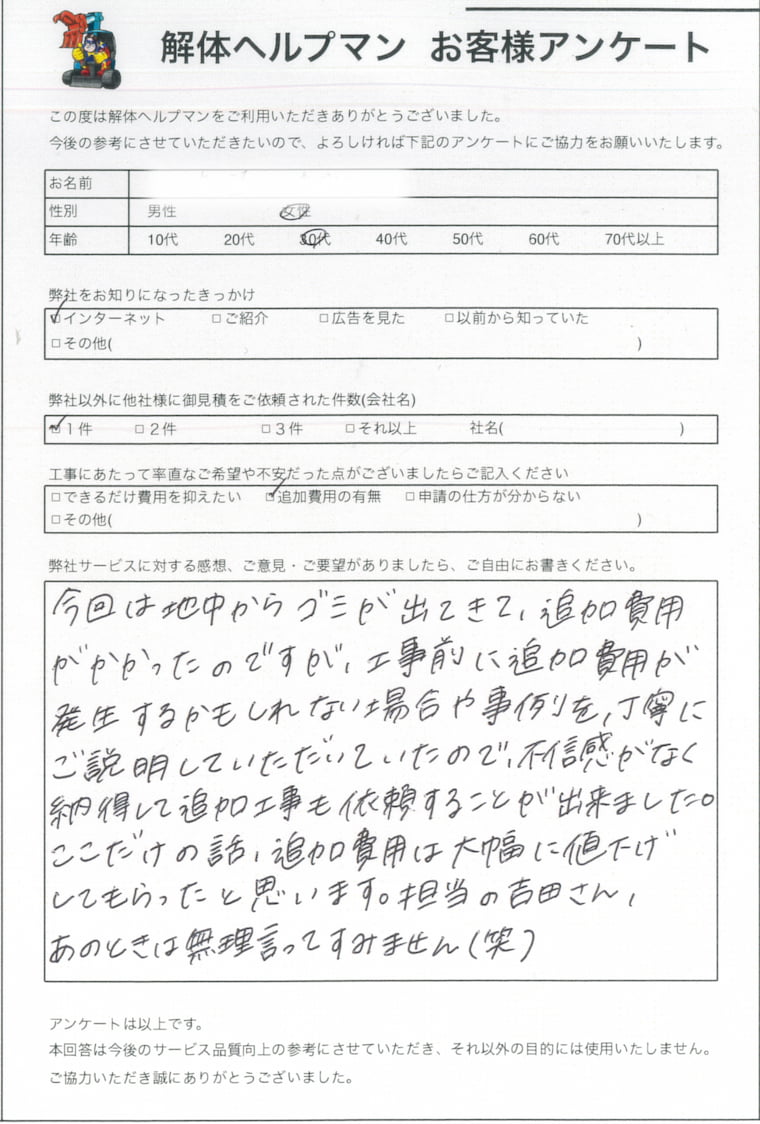 解体ヘルプマン お客様アンケート
この度は解体ヘルプマンをご利用いただきありがとうございました。
今後の参考にさせていただきたいので、よろしければ下記のアンケートにご協力をお願いいたします。
お名前
性別 男性 女性
年齢 10代 20代 30代 40代 50代 60代 70代以上
弊社をお知りになったきっかけ
☑インターネット □ご紹介 □広告を見た □以前から知っていた
□その他( )
弊社以外に他社様に御見積をご依頼された件数(会社名)
☑1件 □2件 □3件 □それ以上 社名( )
工事にあたって率直なご希望や不安だった点がございましたらご記入ください
□できるだけ費用を抑えたい ☑追加費用の有無 □申請の仕方が分からない
□その他( )
弊社サービスに対する感想、ご意見・ご要望がありましたら、ご自由にお書きください。
今回は地中からゴミが出てきて、追加費用
がかかったのですが、工事前に追加費用が
発生するかもしれない場合や事例を、丁寧に
ご説明していただいていたので、不信感がなく
納得して追加工事も依頼することが出来ました。
ここだけの話、追加費用は大幅に値下げ
してもらったと思います。担当の吉田さん、
あのときは無理言ってすみません(笑)
アンケートは以上です。
本回答は今後のサービス品質向上の参考にさせていただき、それ以外の目的には使用いたしません。
ご協力いただき誠にありがとうございました。